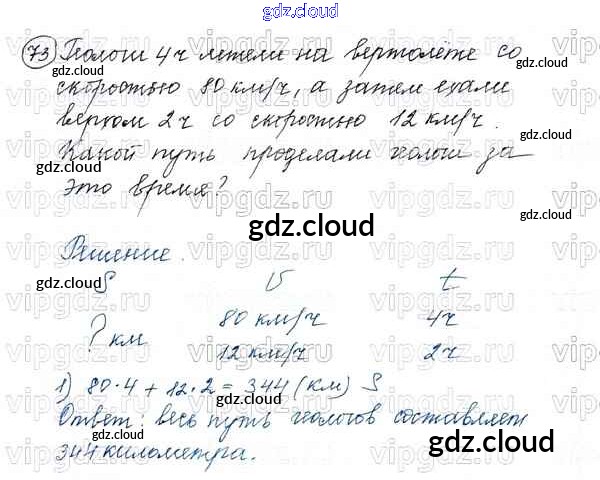 gdz.cloud
73 Геологи 4ч летели на вертолёте со
скоростью 80 км/ч, а затем ехали
верхом 2ч со скоростью 12 км/ч.
Какой путь проделали геологи за
это время?
gdz.cloud
Решение.
S υ t
? км 80 км/ч 4ч
12 км/ч 2ч
1) 80·4 + 12·2 = 344 (км) S
Ответ: весь путь геологов составляет
344 километра.
gdz.cloud